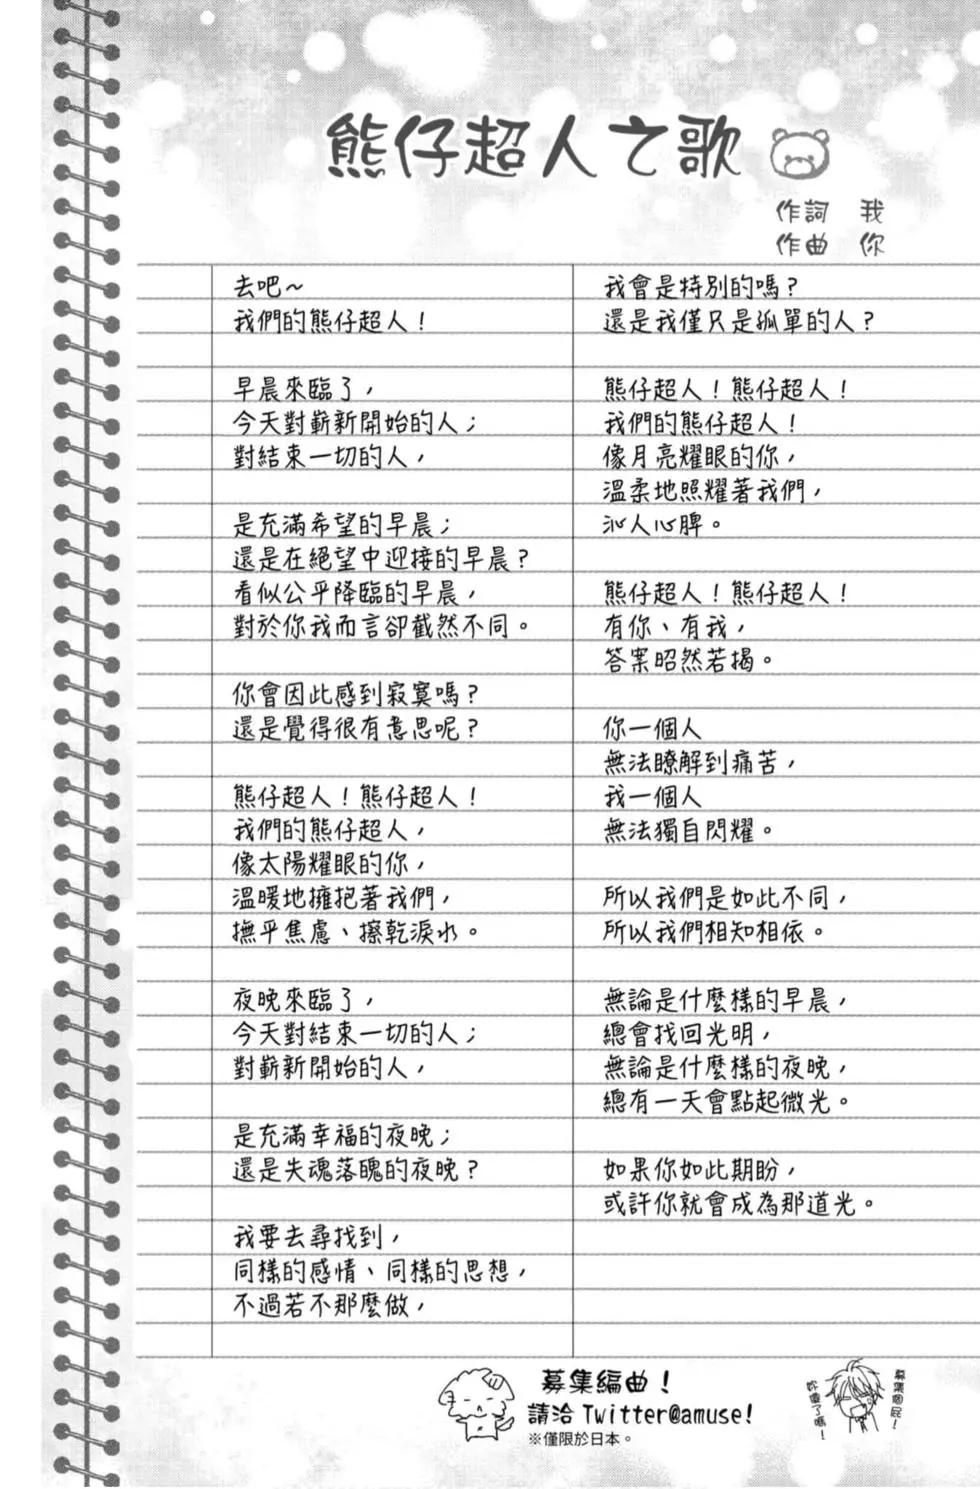 熊仔超人之歌
作詞　我
作曲　你
去吧～
我們的熊仔超人！
早晨來臨了，
今天對嶄新開始的人；
對結束一切的人，
是充滿希望的早晨；
還是在絕望中迎接的早晨？
看似公平降臨的早晨，
對於你我而言卻截然不同。
你會因此感到寂寞嗎？
還是覺得很有意思呢？
熊仔超人！熊仔超人！
我們的熊仔超人，
像太陽耀眼的你，
溫暖地擁抱著我們，
撫平焦慮、擦乾淚水。
夜晚來臨了，
今天對結束一切的人；
對嶄新開始的人，
是充滿幸福的夜晚；
還是失魂落魄的夜晚？
我要去尋找到，
同樣的感情、同樣的思想，
不過若不那麼做，
我會是特別的嗎？
還是我僅只是孤單的人？
熊仔超人！熊仔超人！
我們的熊仔超人！
像月亮耀眼的你，
溫柔地照耀著我們，
沁人心脾。
熊仔超人！熊仔超人！
有你、有我，
答案昭然若揭。
你一個人
無法瞭解到痛苦，
我一個人
無法獨自閃耀。
所以我們是如此不同，
所以我們相知相依。
無論是什麼樣的早晨，
總會找回光明，
無論是什麼樣的夜晚，
總有一天會點起微光。
如果你如此期盼，
或許你就會成為那道光。
募集編曲！
請洽 Twitter@amuse!
※僅限於日本。
募集個屁！
妳傻了嗎！